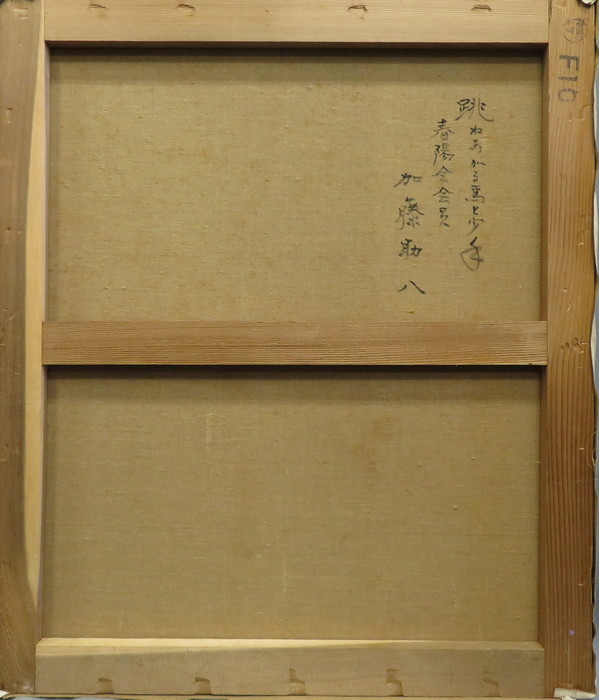 跳ねあがる馬と少年
春陽会会員
加藤助八
F10